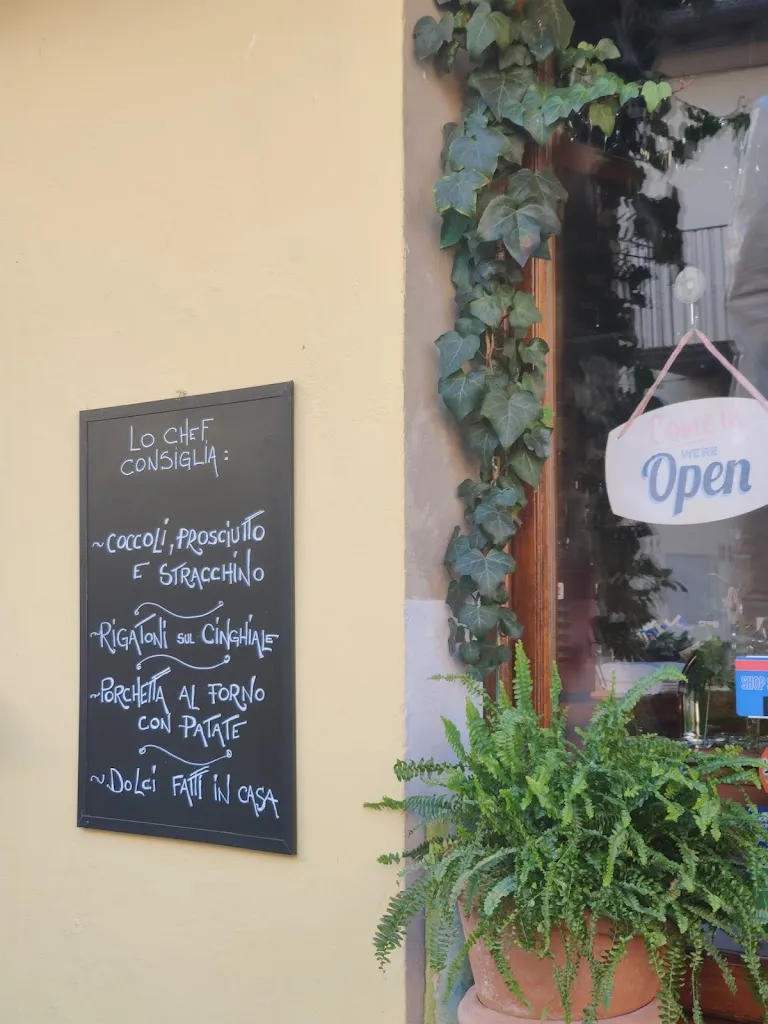 LO CHEF
CONSIGLIA:
~COCCOLI, PROSCIUTTO
E STRACCHINO
~RIGATONI SUL CINGHIALE
~PORCHETTA AL FORNO
CON PATATE
~DOLCI FATTI IN CASA
COME IN
WE'RE
Open
SHOP